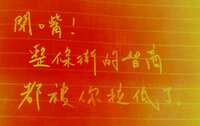 閉嘴！
整條街的智商
都被你拉低了。